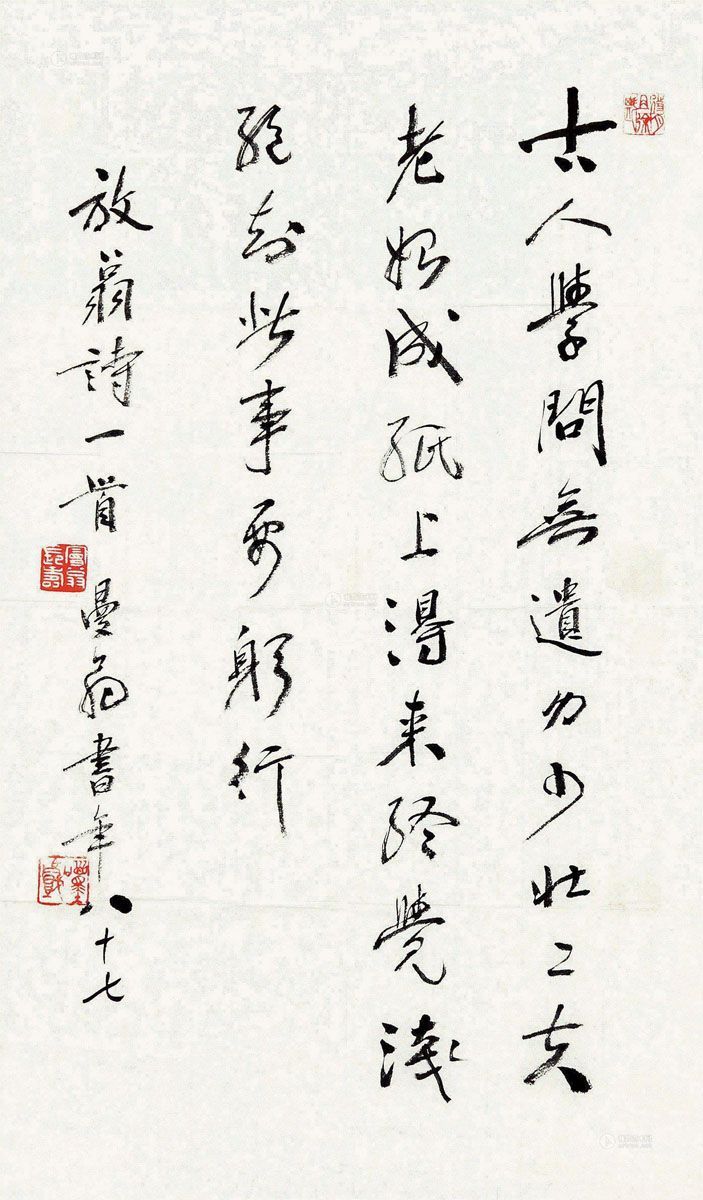 古人學問無遺力少壯工夫
老始成紙上得来終覺淺
絕知此事要躬行
放翁詩一首 曼翁書年八十七
曼翁長壽